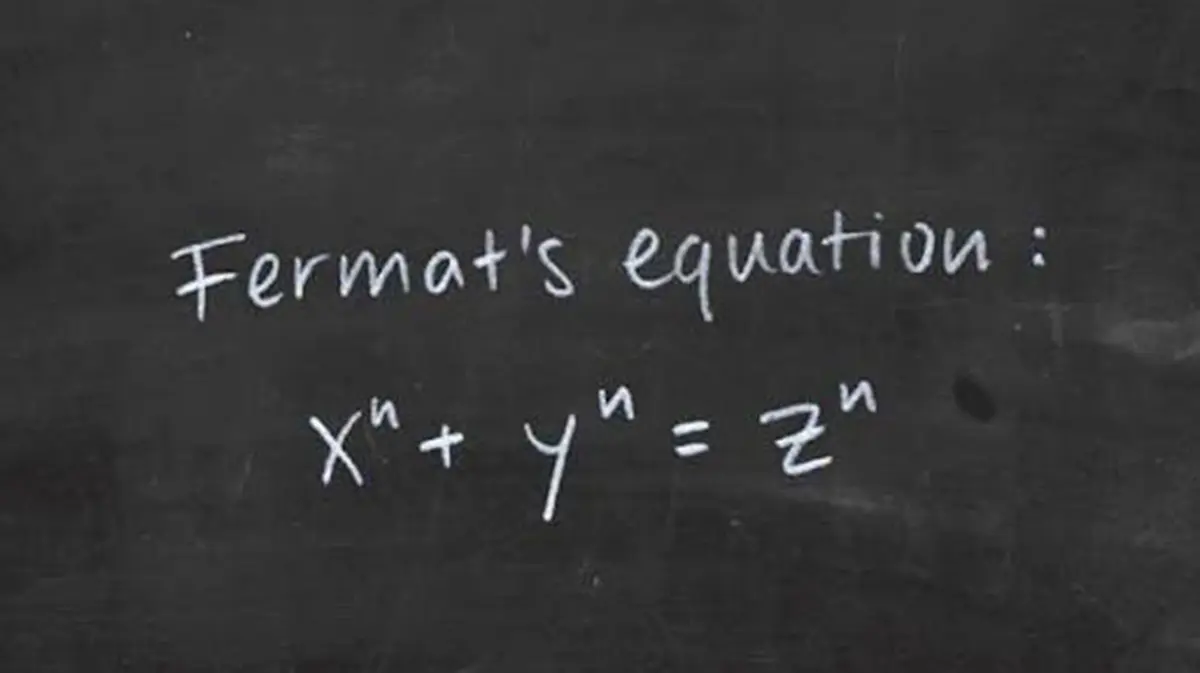 Fermat's equation:
xⁿ + yⁿ = zⁿ